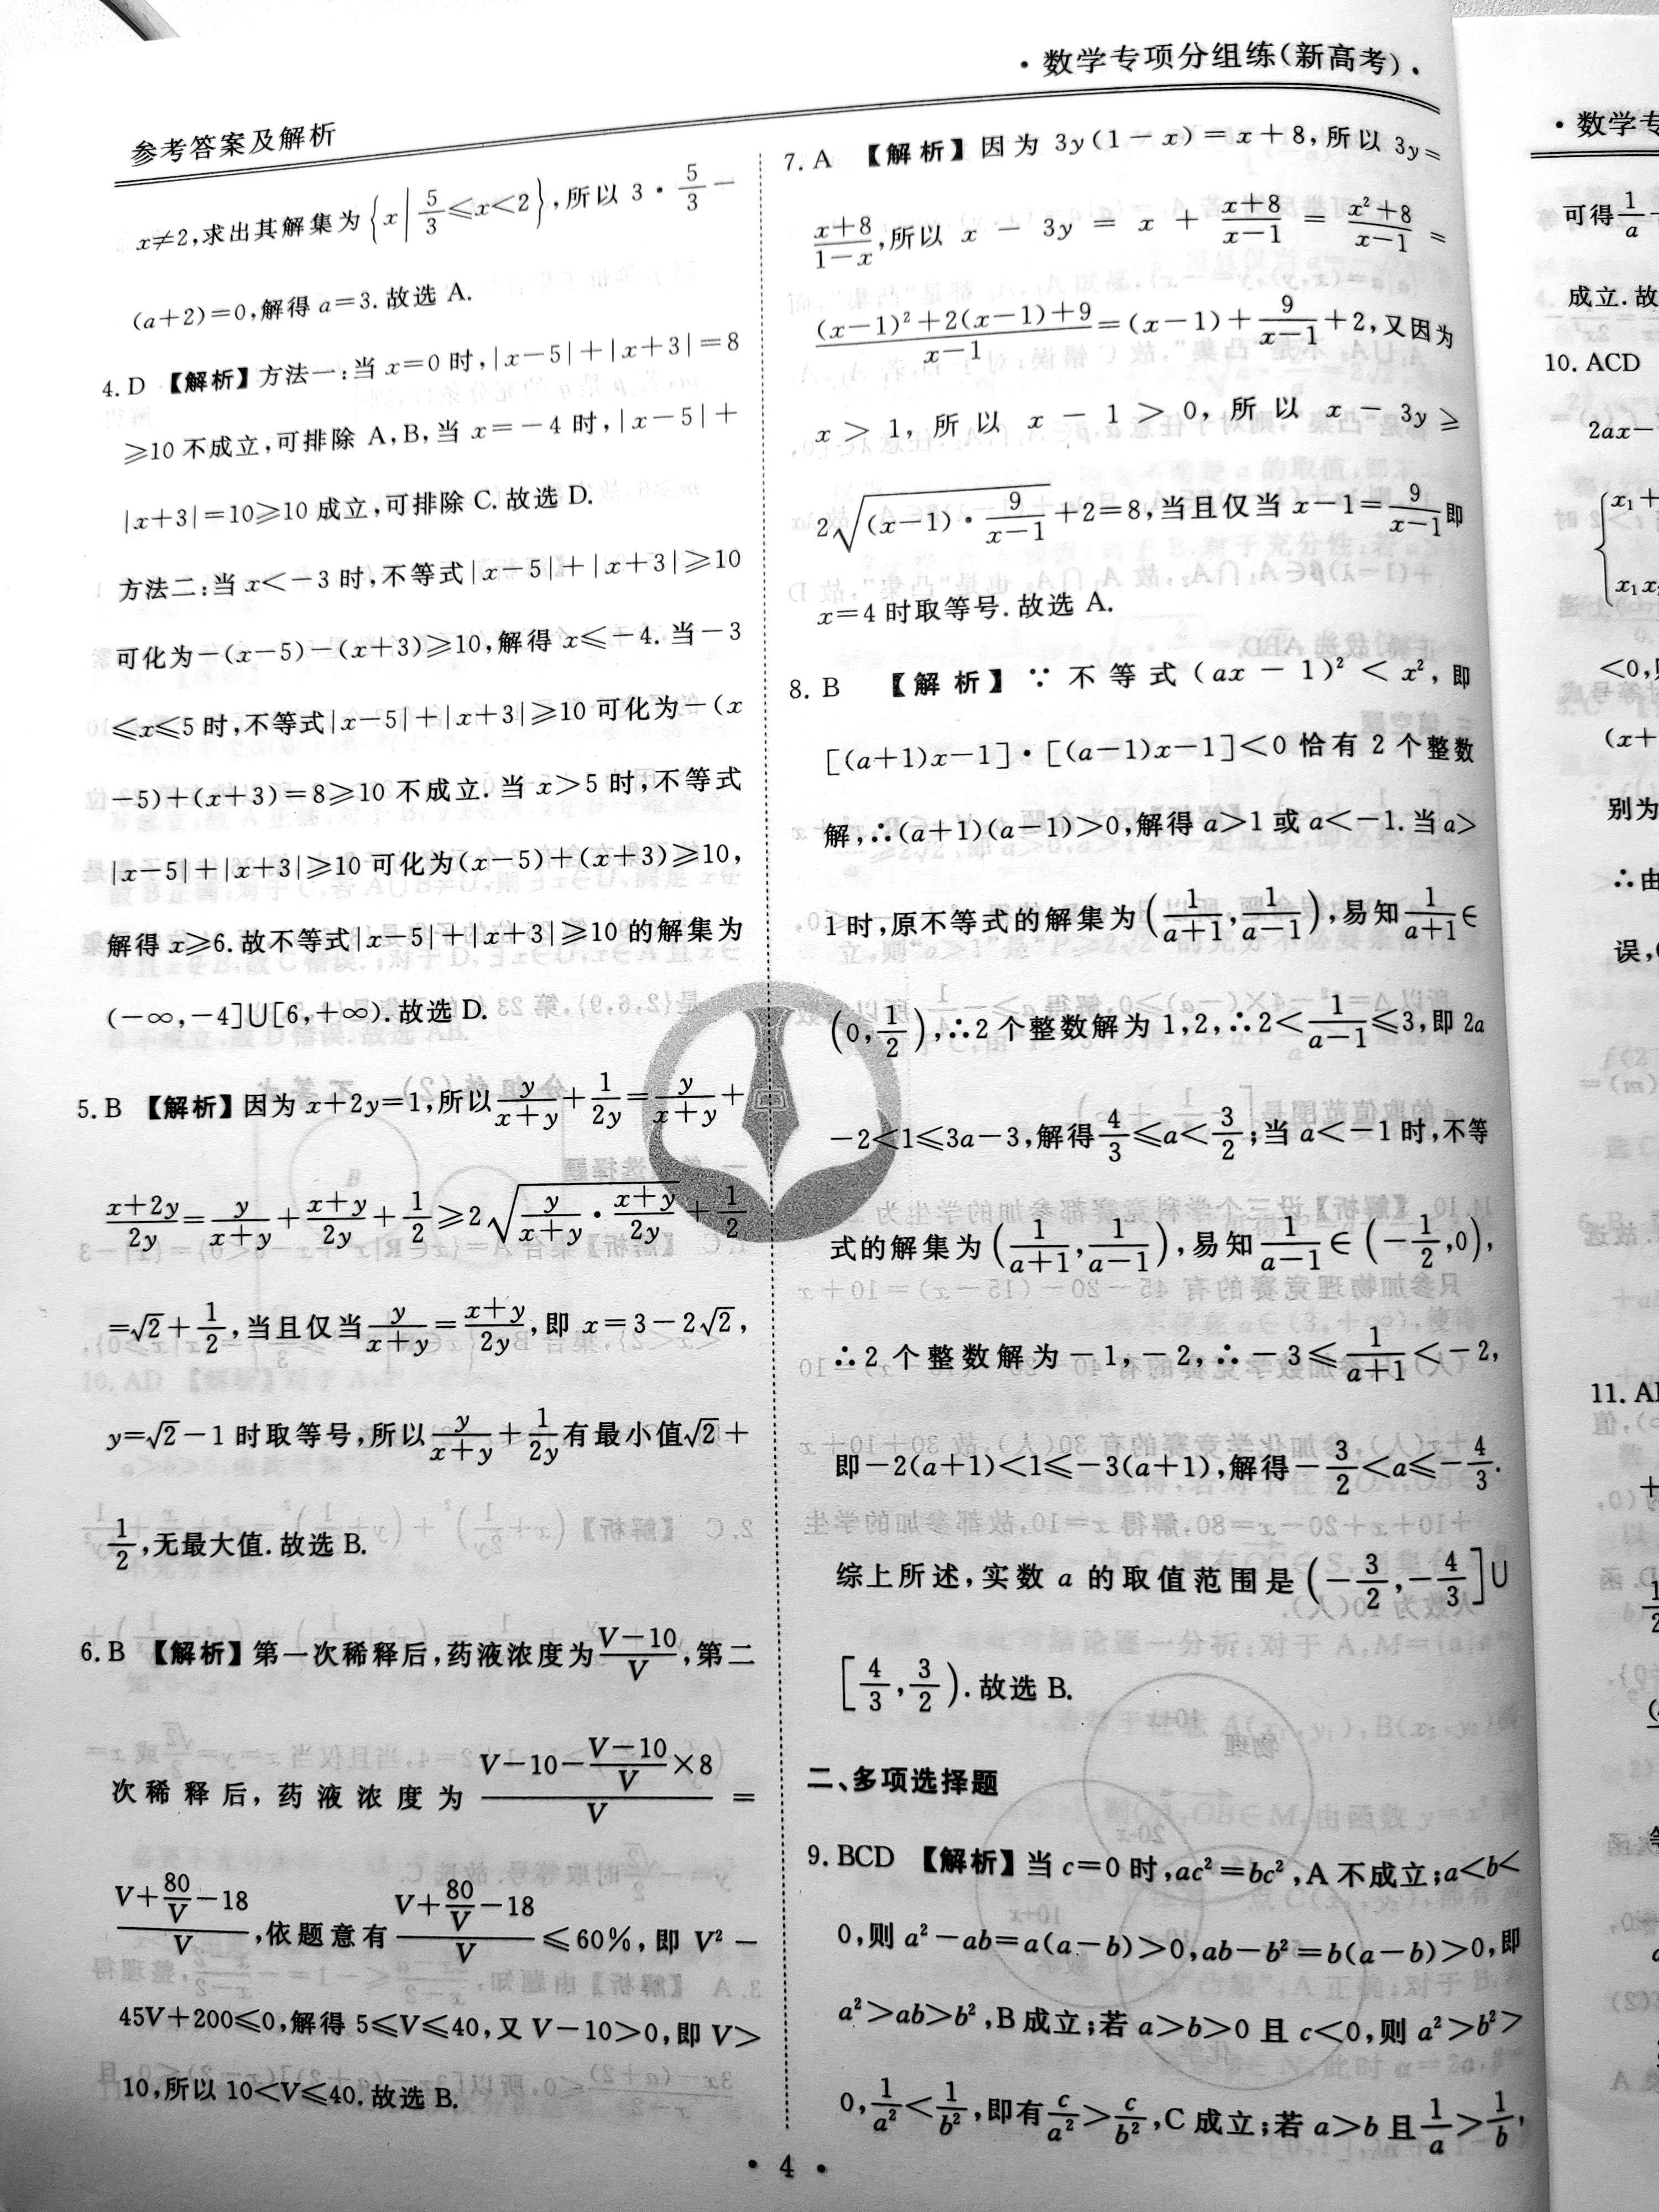 · 数学专项分组练(新高考) ·
参考答案及解析
x≠2,求出其解集为{x|5/3≤x<2},所以 3·5/3-
(a+2)=0,解得 a=3. 故选 A.
4. D 【解析】方法一:当 x=0 时,|x-5|+|x+3|=8
≥10 不成立,可排除 A,B,当 x=-4 时,|x-5|+
|x+3|=10≥10 成立,可排除 C. 故选 D.
方法二:当 x<-3 时,不等式|x-5|+|x+3|≥10
可化为-(x-5)-(x+3)≥10,解得 x≤-4. 当-3
≤x≤5 时,不等式|x-5|+|x+3|≥10 可化为-(x
-5)+(x+3)=8≥10 不成立. 当 x>5 时,不等式
|x-5|+|x+3|≥10 可化为(x-5)+(x+3)≥10,
解得 x≥6. 故不等式|x-5|+|x+3|≥10 的解集为
(-∞,-4]∪[6,+∞). 故选 D.
5. B 【解析】因为 x+2y=1,所以 y/(x+y)+1/(2y)=y/(x+y)+
(x+2y)/(2y)=y/(x+y)+(x+y)/(2y)+1/2≥2√(y/(x+y)·(x+y)/(2y))+1/2
=√2+1/2,当且仅当 y/(x+y)=(x+y)/(2y),即 x=3-2√2,
y=√2-1 时取等号,所以 y/(x+y)+1/(2y)有最小值√2+
1/2,无最大值. 故选 B.
6. B 【解析】第一次稀释后,药液浓度为(V-10)/V,第二
次稀释后,药液浓度为(V-10-(V-10)/V×8)/V=
(V+80/V-18)/V,依题意有(V+80/V-18)/V≤60%,即 V²-
45V+200≤0,解得 5≤V≤40,又 V-10>0,即 V>
10,所以 10<V≤40. 故选 B.
7. A 【解析】因为 3y(1-x)=x+8,所以 3y=
(x+8)/(1-x),所以 x-3y=x+(x+8)/(x-1)=(x²+8)/(x-1)=
((x-1)²+2(x-1)+9)/(x-1)=(x-1)+9/(x-1)+2,又因为
x>1,所以 x-1>0,所以 x-3y≥
2√((x-1)·9/(x-1))+2=8,当且仅当 x-1=9/(x-1)即
x=4 时取等号. 故选 A.
8. B 【解析】∵不等式(ax-1)²<x²,即
[(a+1)x-1]·[(a-1)x-1]<0 恰有 2 个整数
解,∴(a+1)(a-1)>0,解得 a>1 或 a<-1. 当 a>
1 时,原不等式的解集为(1/(a+1),1/(a-1)),易知 1/(a+1)∈
(0,1/2),∴2 个整数解为 1,2,∴2<1/(a-1)≤3,即 2a
-2<1≤3a-3,解得 4/3≤a<3/2;当 a<-1 时,不等
式的解集为(1/(a+1),1/(a-1)),易知 1/(a-1)∈(-1/2,0),
∴2 个整数解为-1,-2,∴-3≤1/(a+1)<-2,
即-2(a+1)<1≤-3(a+1),解得-3/2<a≤-4/3.
综上所述,实数 a 的取值范围是(-3/2,-4/3]∪
[4/3,3/2). 故选 B.
二、多项选择题
9. BCD 【解析】当 c=0 时,ac²=bc²,A 不成立;a<b<
0,则 a²-ab=a(a-b)>0,ab-b²=b(a-b)>0,即
a²>ab>b²,B 成立;若 a>b>0 且 c<0,则 a²>b²>
0,1/a²<1/b²,即有 c/a²>c/b²,C 成立;若 a>b 且 1/a>1/b,
· 4 ·
· 数学专
可得 1/a
成立. 故
10. ACD
2ax-
x₁+
<0,
(x+
别为
∴由
误,